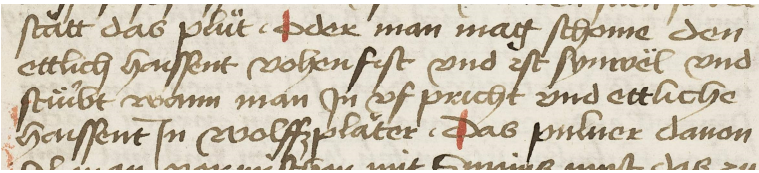 stätt das plüt . Oder man mag schome den
ettlich haissent vohenfist vnd ist synwël vnd
stübt wann man Jn vf pricht vnd ettliche
haissent Jn wolffzplåter . Das puluer dauon